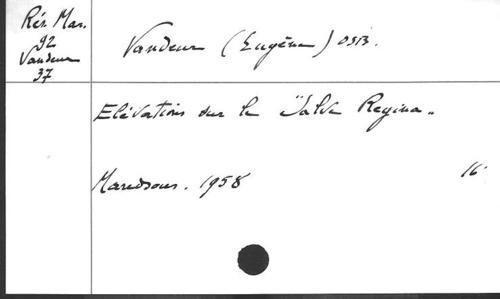 Rés. Mar.
92
Vandeur
37
Vandeur (Eugène) OSB.
Elévations sur le "Salve Regina"
Maredsous. 1958
16